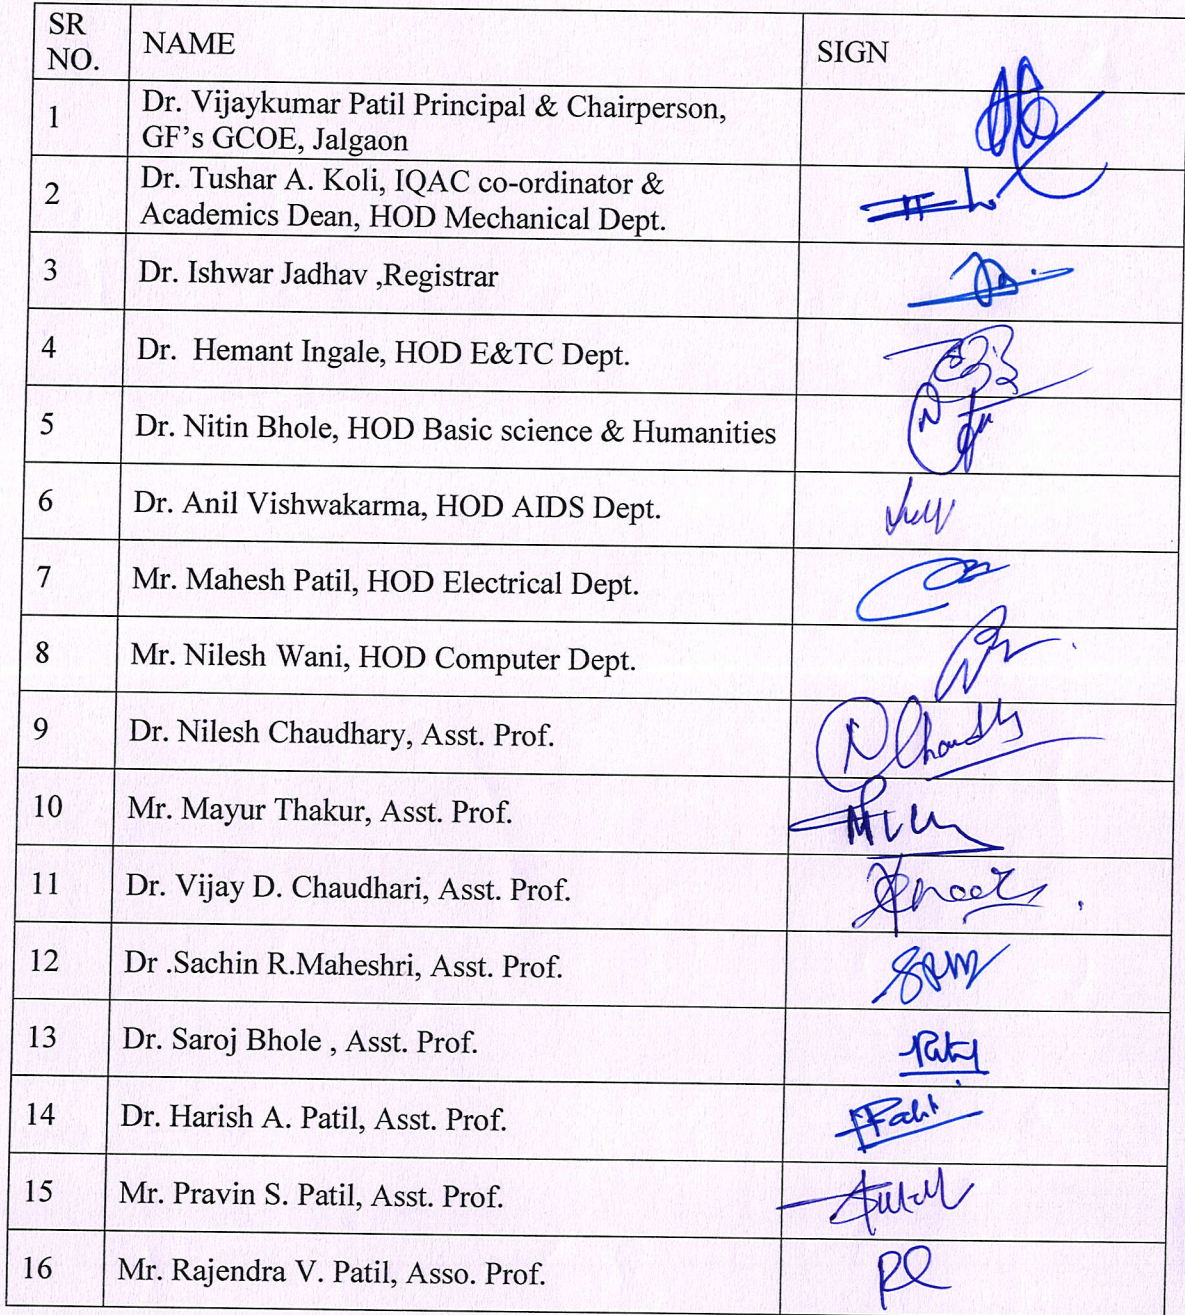 SR
NO.
NAME
SIGN
1
Dr. Vijaykumar Patil Principal & Chairperson,
GF's GCOE, Jalgaon
2
Dr. Tushar A. Koli, IQAC co-ordinator &
Academics Dean, HOD Mechanical Dept.
3
Dr. Ishwar Jadhav ,Registrar
4
Dr. Hemant Ingale, HOD E&TC Dept.
5
Dr. Nitin Bhole, HOD Basic science & Humanities
6
Dr. Anil Vishwakarma, HOD AIDS Dept.
7
Mr. Mahesh Patil, HOD Electrical Dept.
8
Mr. Nilesh Wani, HOD Computer Dept.
9
Dr. Nilesh Chaudhary, Asst. Prof.
10
Mr. Mayur Thakur, Asst. Prof.
11
Dr. Vijay D. Chaudhari, Asst. Prof.
12
Dr .Sachin R.Maheshri, Asst. Prof.
13
Dr. Saroj Bhole , Asst. Prof.
14
Dr. Harish A. Patil, Asst. Prof.
15
Mr. Pravin S. Patil, Asst. Prof.
16
Mr. Rajendra V. Patil, Asso. Prof.